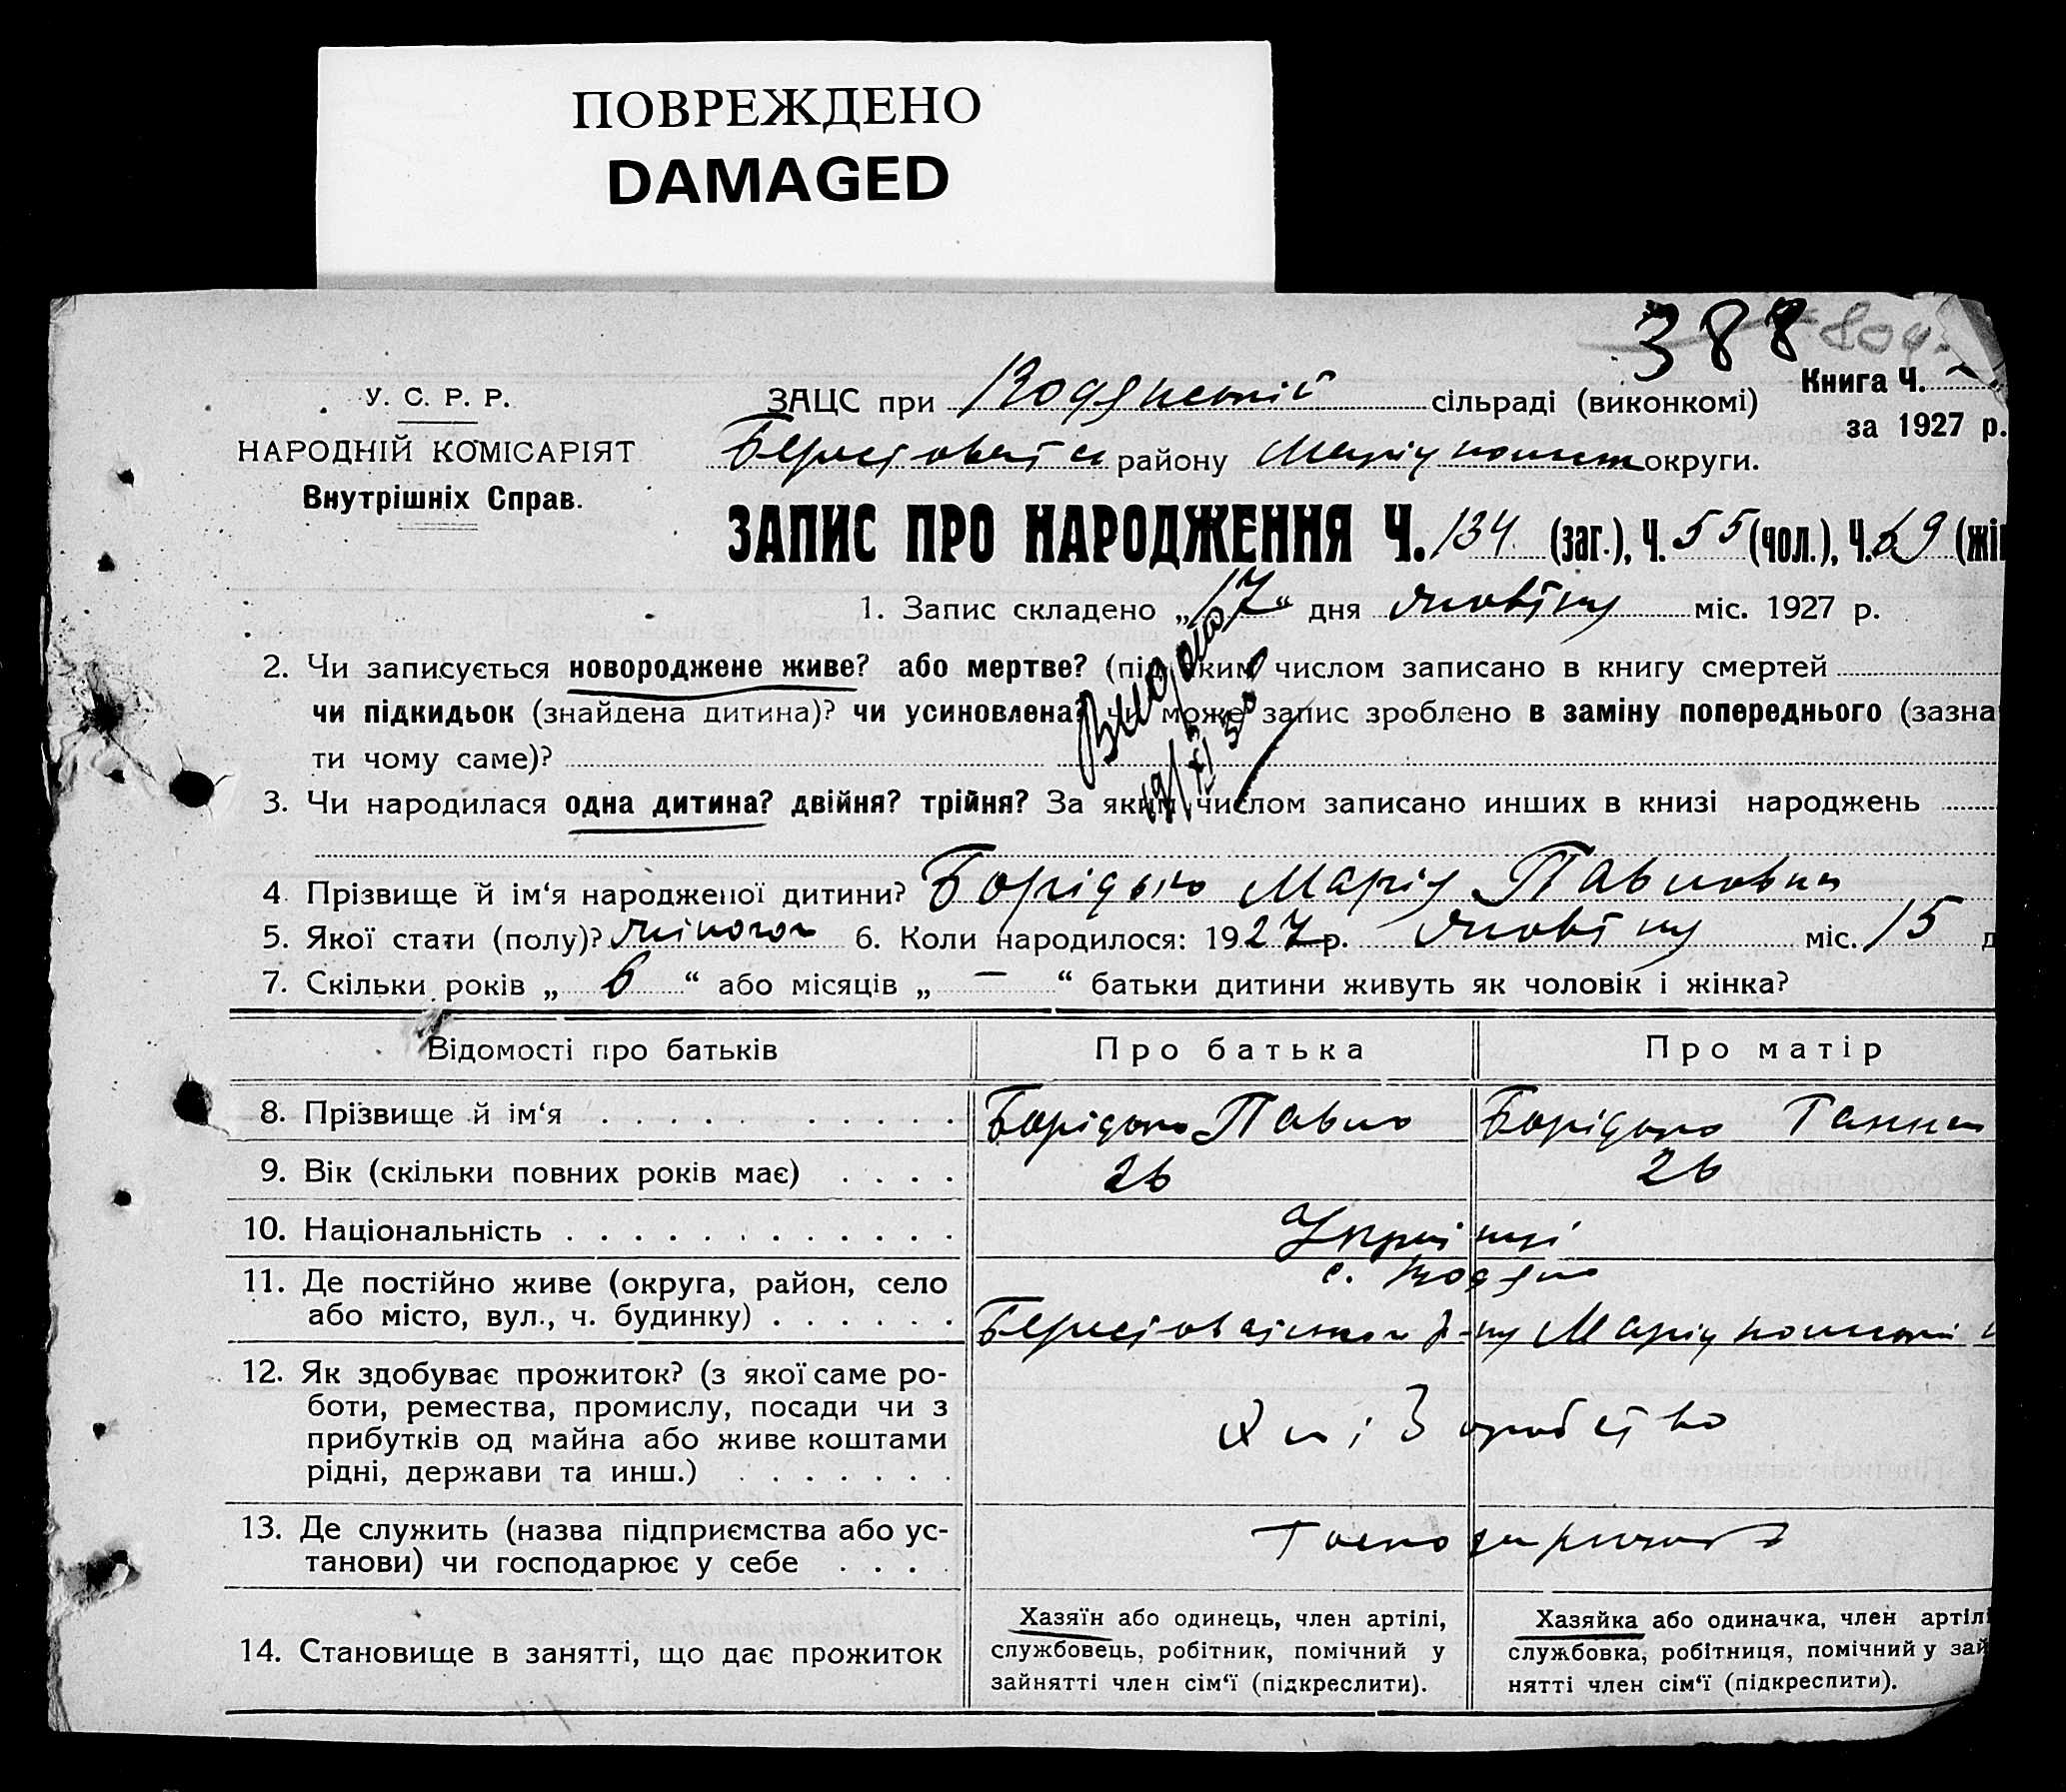 ПОВРЕЖДЕНО
DAMAGED
388
У. С. Р. Р.
НАРОДНІЙ КОМІСАРІЯТ
Внутрішніх Справ.
ЗАЦС при Водянській сільраді (виконкомі) Книга Ч.
за 1927 р.
району округи.
ЗАПИС ПРО НАРОДЖЕННЯ Ч. 134 (заг.), Ч. 55 (чол.), Ч. 69 (жі
1. Запис складено „17“ дня жовтня міс. 1927 р.
2. Чи записується новороджене живе? або мертве? (під яким числом записано в книгу смертей
чи підкидьок (знайдена дитина)? чи усиновлена? може запис зроблено в заміну попереднього (зазна
ти чому саме)?
3. Чи народилася одна дитина? двійня? трійня? За яким числом записано инших в книзі народжень
4. Прізвище й ім‘я народженої дитини? Борідько Марія Павловна
5. Якої стати (полу)? жіночої 6. Коли народилося: 1927 р. жовтня міс. 15 д
7. Скільки років „ 6 “ або місяців „ — “ батьки дитини живуть як чоловік і жінка?
Відомості про батьків Про батька Про матір
8. Прізвище й ім‘я Борідько Павло Борідько Ганна
9. Вік (скільки повних років має) 26 26
10. Національність Українці
11. Де постійно живе (округа, район, село с. Водяно
або місто, вул., ч. будинку) р-ну
12. Як здобуває прожиток? (з якої саме ро-
боти, ремества, промислу, посади чи з
прибутків од майна або живе коштами
рідні, держави та инш.) Хліборобство
13. Де служить (назва підприємства або ус-
танови) чи господарює у себе
14. Становище в занятті, що дає прожиток
Хазяїн або одинець, член артілі,
службовець, робітник, помічний у
зайнятті член сім‘ї (підкреслити).
Хазяйка або одиначка, член артілі
службовка, робітниця, помічний у зай
нятті член сім‘ї (підкреслити).